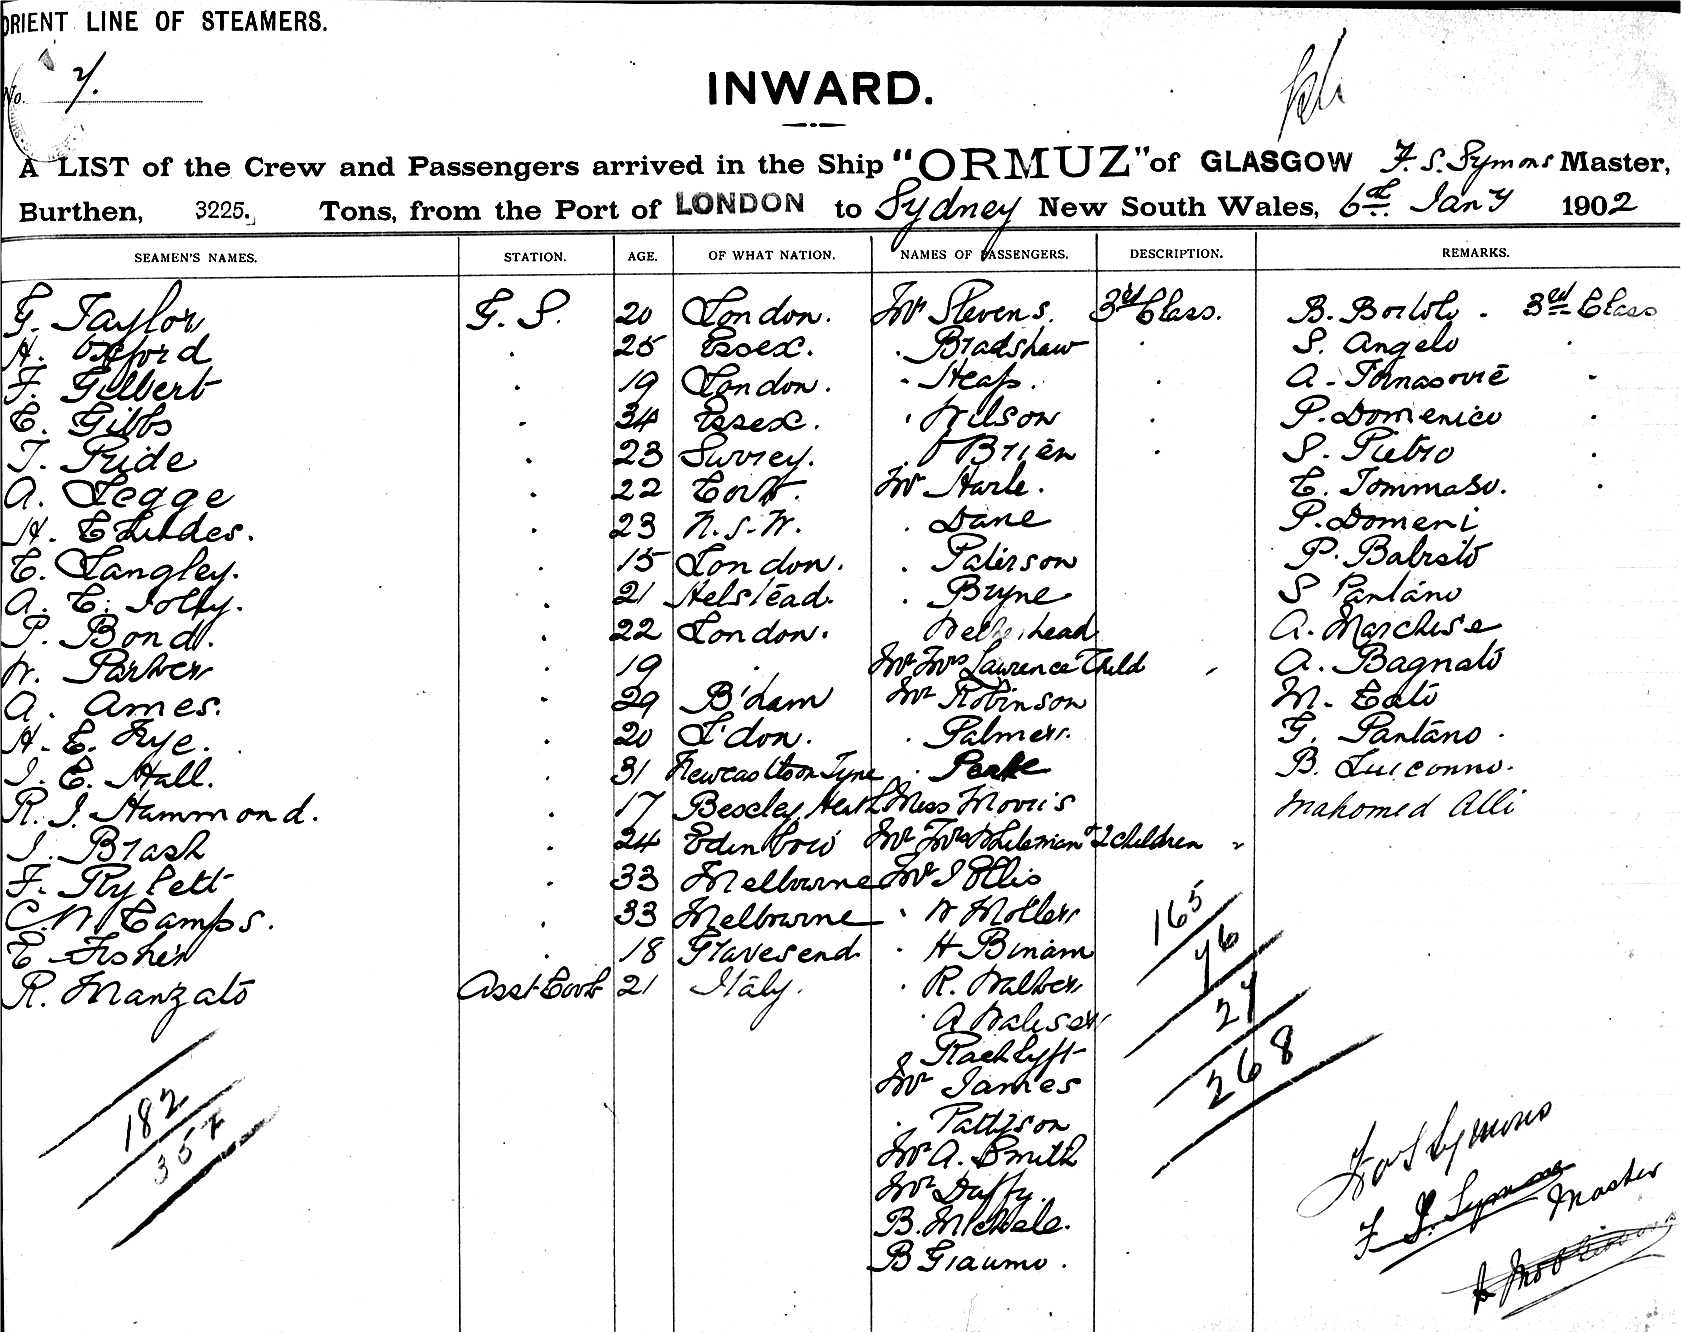 ORIENT LINE OF STEAMERS.
No. 7.
INWARD.
A LIST of the Crew and Passengers arrived in the Ship "ORMUZ" of GLASGOW F. S. Symons Master,
Burthen, 3225. Tons, from the Port of LONDON to Sydney New South Wales, 6th Jany 1902
SEAMEN'S NAMES. STATION. AGE. OF WHAT NATION. NAMES OF PASSENGERS. DESCRIPTION. REMARKS.
G. Taylor G. S. 20 London. Mr Stevens. 3rd Class. B. Bortolo . 3rd Class
H. Oxford . 25 Essex. . Bradshaw . S. Angelo .
F. Gilbert . 19 London. . Heap. . A. Tomasovic .
E. Gibbs . 34 Essex. . Wilson . P. Domenico .
T. Pride . 23 Surrey. . O'Brien . S. Pietro .
A. Legge . 22 Cork. Mr Harle. E. Tommaso. .
H. E. . 23 N.S.W. . Dane P. Domeni
E. Langley. . 15 London. . Paterson P.
A. E. Jolly. . 21 Helstead. . Bryne S Pantano
P. Bond. . 22 London. A. Marchese
W. Parker . 19 . Mr Mrs Lawrence Child . A. Bagnato
A. Ames. . 29 B'ham Mr Robinson M. Cato
H. E. Frye. . 20 L'don. . Palmer. G. Pantano .
J. E. Hall. . 31 Newcastle on Tyne . Peake B.
R. J. Hammond. . 17 Bexley Heath Miss Morris Mahomed Alli
J. Brash . 24 Edinboro Mr Mrs & 2 children "
F. Rylett . 33 Melbourne Mr J Ellis
C. W. Camps. . 33 Melbourne . W Moller
E Fisher . 18 Gravesend . H Binam
R. Manzato Asst Cook 21 Italy. . R. Walker
A
James
. Pattison
Mr A. Smith
Mr Duffy.
B. Michele.
B Giaumo.
165
76
27
268
182
357
F. S. Symons
Master